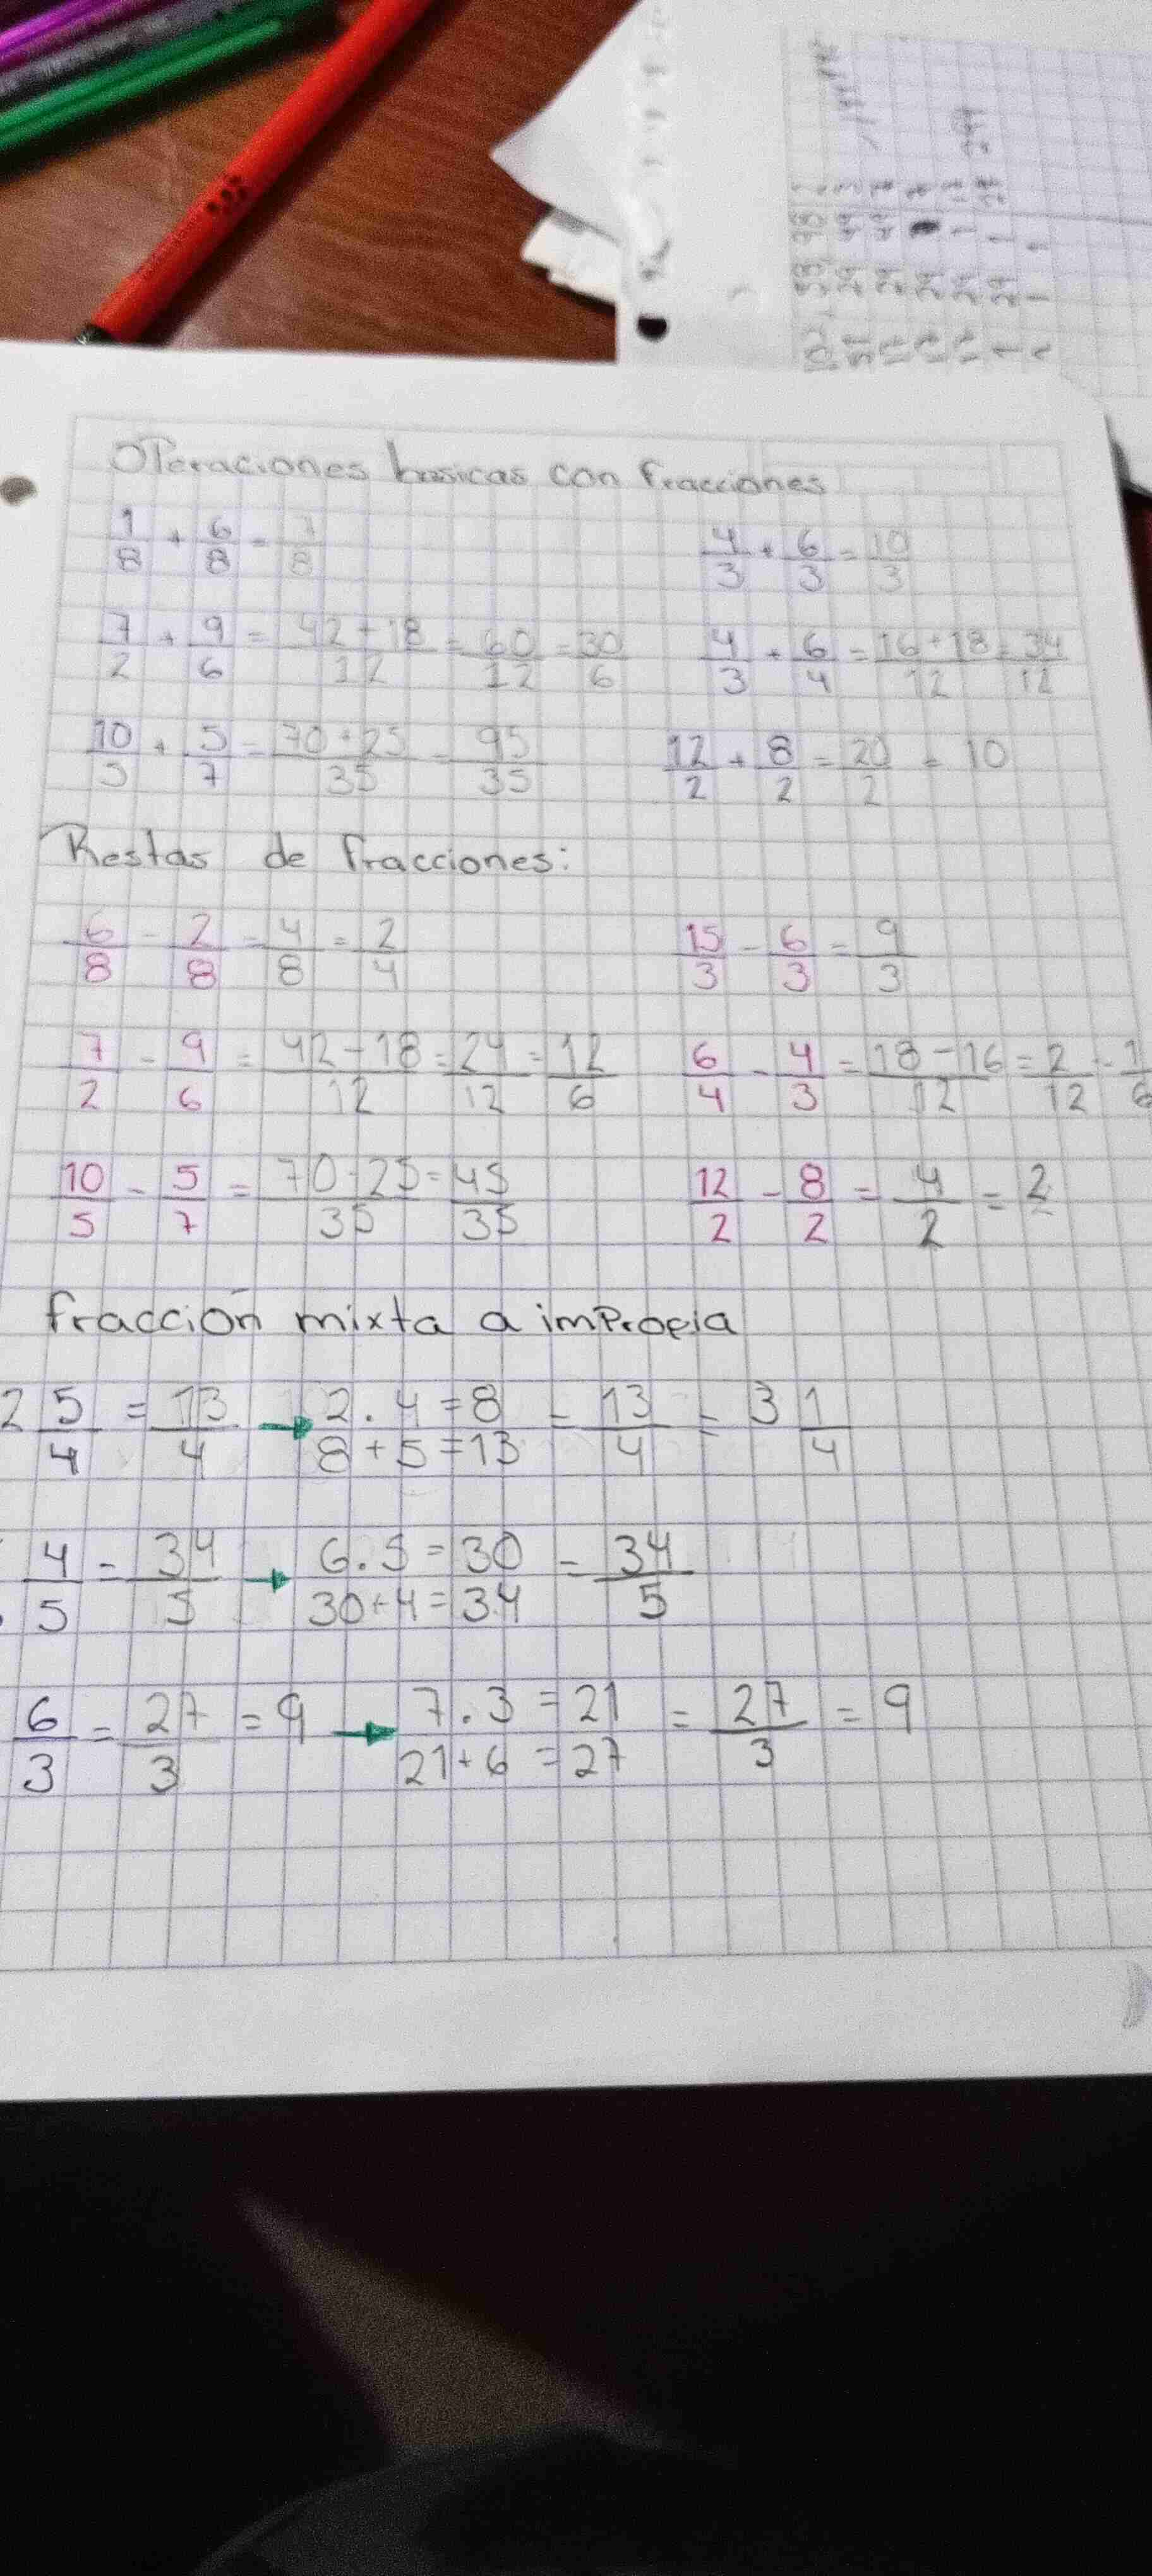 Operaciones basicas con fracciones
1/8 + 6/8 = 7/8    4/3 + 6/3 = 10/3
7/2 + 9/6 = 42+18/12 = 60/12 = 30/6    4/3 + 6/4 = 16+18/12 = 34/12
10/5 + 5/7 = 70+25/35 = 95/35    12/2 + 8/2 = 20/2 = 10
Restas de fracciones:
6/8 - 2/8 = 4/8 = 2/4    15/3 - 6/3 = 9/3
7/2 - 9/6 = 42-18/12 = 24/12 = 12/6    6/4 - 4/3 = 18-16/12 = 2/12 = 1/6
10/5 - 5/7 = 70-25/35 = 45/35    12/2 - 8/2 = 4/2 = 2
fracción mixta a impropia
2 5/4 = 13/4 → 2.4=8 = 13/4 = 3 1/4
8+5=13
4/5 = 34/5 → 6.5=30 = 34/5
30+4=34
6/3 = 27/3 = 9 → 7.3=21 = 27/3 = 9
21+6=27